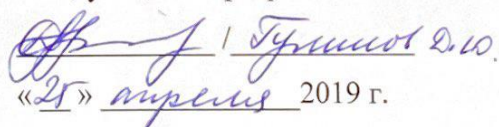 / Гулинов Д.Ю.
«25» апреля 2019 г.